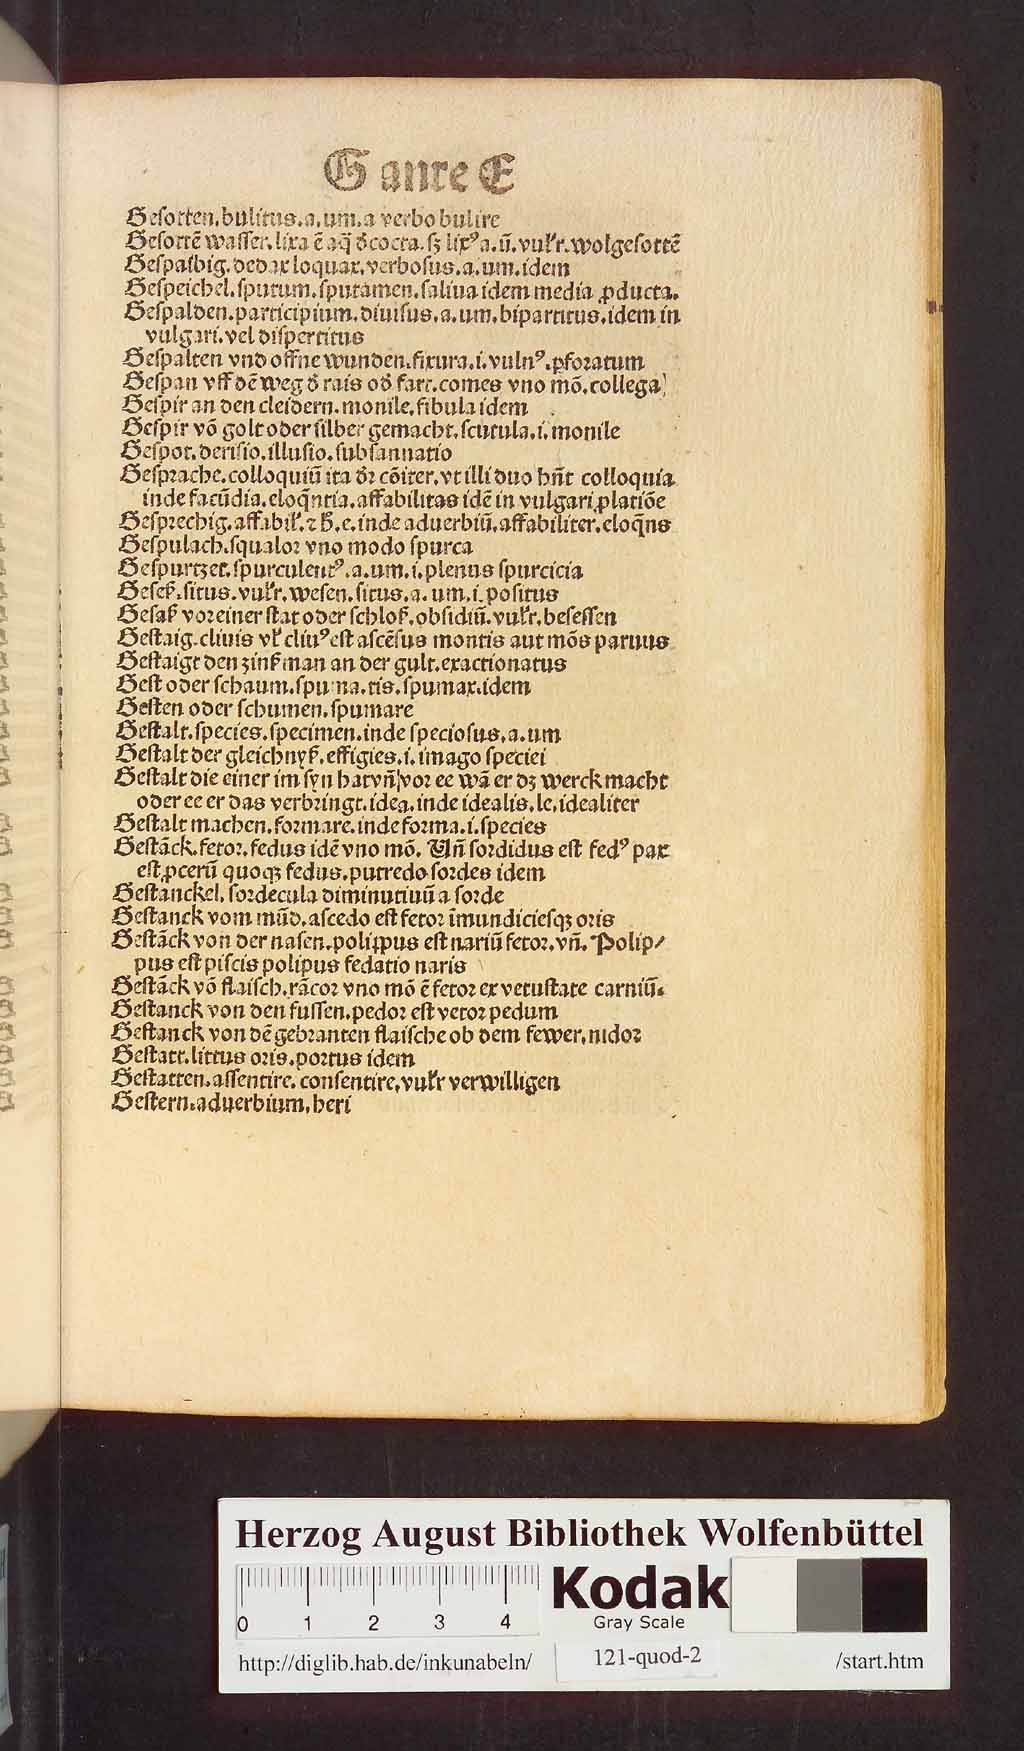 G ante E
Gesotten. bulitus. a. um. a verbo bulire
Gesottē wasser. lixa ē aq̄ dcocta. sꝫ lixꝰ a. ū. vulꝛ. wolgesottē
Gespaſbig. dedax loquax. verbosus. a. um. idem
Gespeichel. sputum. sputamen. saliua idem media ꝓducta.
Gespalden. participium. diuisus. a. um. bipartitus. idem in
vulgari. vel dispertitus
Gespalten vnd offne wunden. fixura. i. vulnꝰ. ꝑforatum
Gespan vff dē weg d̕ rais od̕ fart. comes vno mō. collega
Gespir an den cleidern. monile. fibula idem
Gespir vō golt oder silber gemacht. scutula. i. monile
Gespot. derisio. illusio. subsannatio
Gesprache. colloquiū ita dꝛ cōiter. vt illi duo hn̄t colloquia
inde facūdia. eloq̄ntia. affabilitas idē in vulgari ꝓlatiōe
Gesprechig. affabil̕. ⁊ h̕. e. inde aduerbiū. affabiliter. eloq̄ns
Gespulach. squalor vno modo spurca
Gespurtzet. spurculentꝰ. a. um. i. plenus spurcicia
Geseß. situs. vulꝛ. wesen. situs. a. um. i. positus
Gesaß vor einer stat oder schloß. obsidiū. vulꝛ. besessen
Gestaig. cliuis vl̕ cliuꝰ est ascēsus montis aut mōs paruus
Gestaigt den zinßman an der gult. exactionatus
Gest oder schaum. spuma. tis. spumax. idem
Gesten oder schumen. spumare
Gestalt. species. specimen. inde speciosus. a. um
Gestalt der gleichnyß. effigies. i. imago speciei
Gestalt die einer im syn hat vn̄ vor ee wā er dz werck macht
oder ee er das verbringt. idea. inde idealis. le. idealiter
Gestalt machen. formare. inde forma. i. species
Gestāck. fetor. fedus idē vno mō. Vn̄ sordidus est fedꝰ pax
est ꝓcerū quoqꝫ fedus. putredo sordes idem
Gestanckel. sordecula diminutiuū a sorde
Gestanck vom mūd. ascedo est fetor īmundiciesqꝫ oris
Gestāck von der nasen. polippus est nariū fetor. vn̄. Polip/
pus est piscis polipus fedatio naris
Gestāck vō flaisch. rācor vno mō ē fetor ex vetustate carniū.
Gestanck von den fussen. pedor est vetor pedum
Gestanck von dē gebranten flaische ob dem fewer. nidor
Gestatt. littus oris. portus idem
Gestatten. assentire. consentire. vulꝛ verwilligen
Gestern. aduerbium. heri
Herzog August Bibliothek Wolfenbüttel
0 1 2 3 4
Kodak
Gray Scale
http://diglib.hab.de/inkunabeln/
121-quod-2
/start.htm